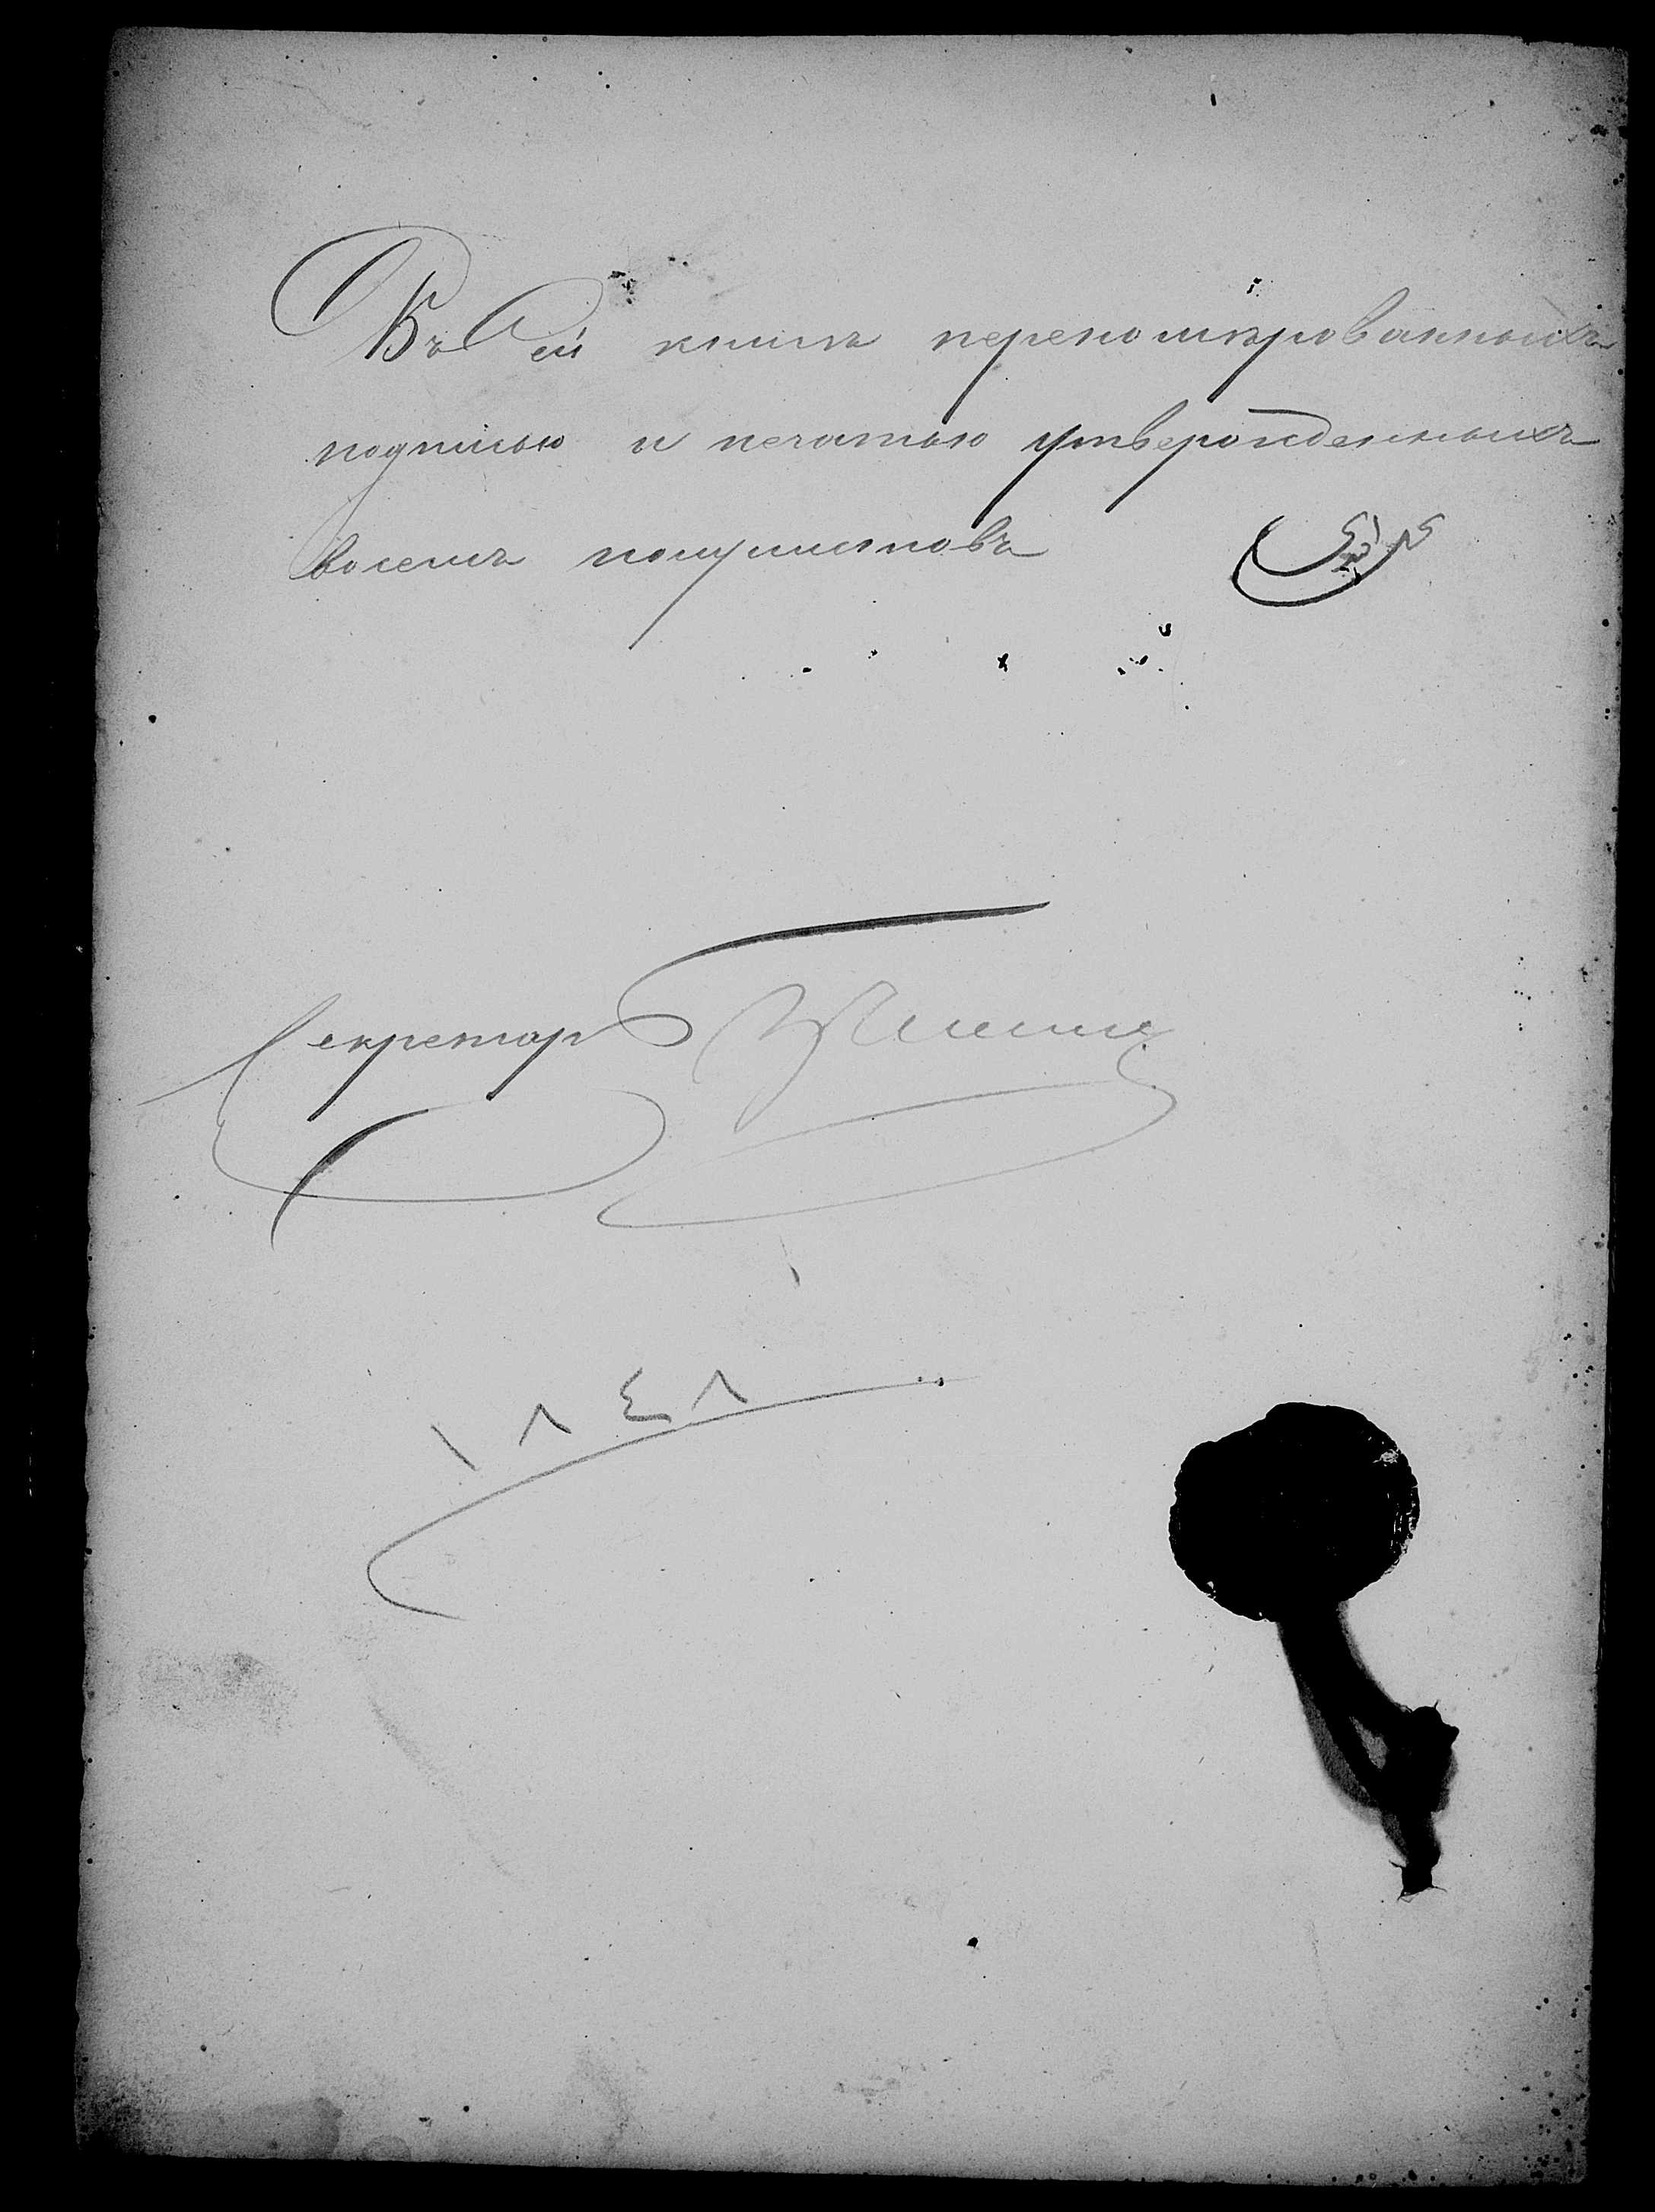 Въ Сей книгѣ перенумѣрованныхъ
подписью и печатью утвержденныхъ
восемь полулистовъ
Секретарь
١٨٤٨